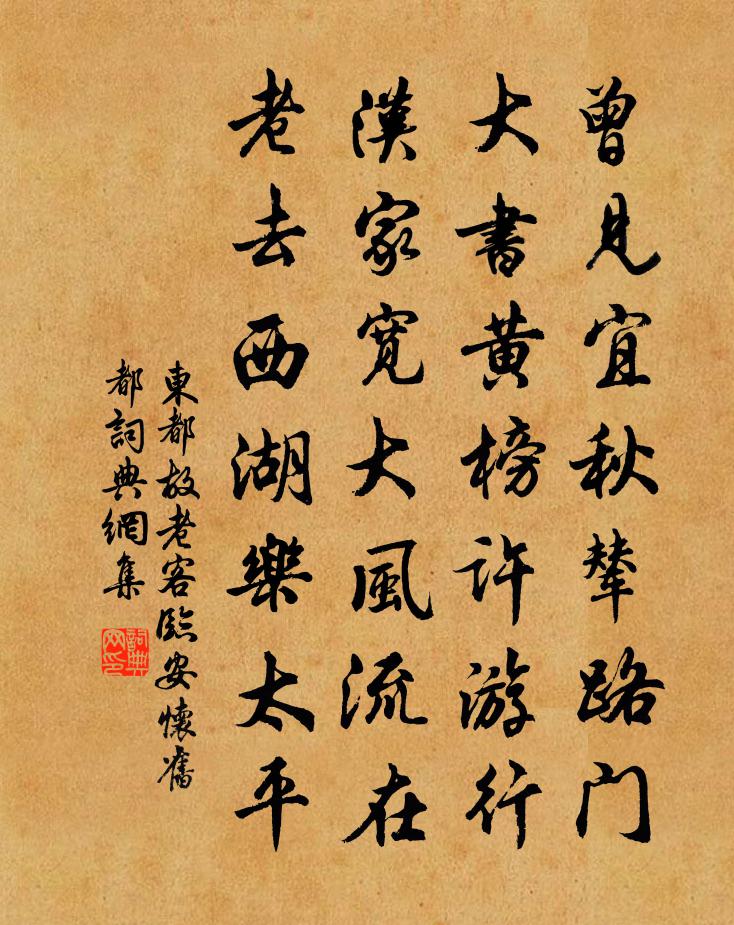 曾見宜秋輦路门
大書黄榜许游行
漢家寬大風流在
老去西湖樂太平
東都故老客臨安懷舊
都詞典網集
詞典网印